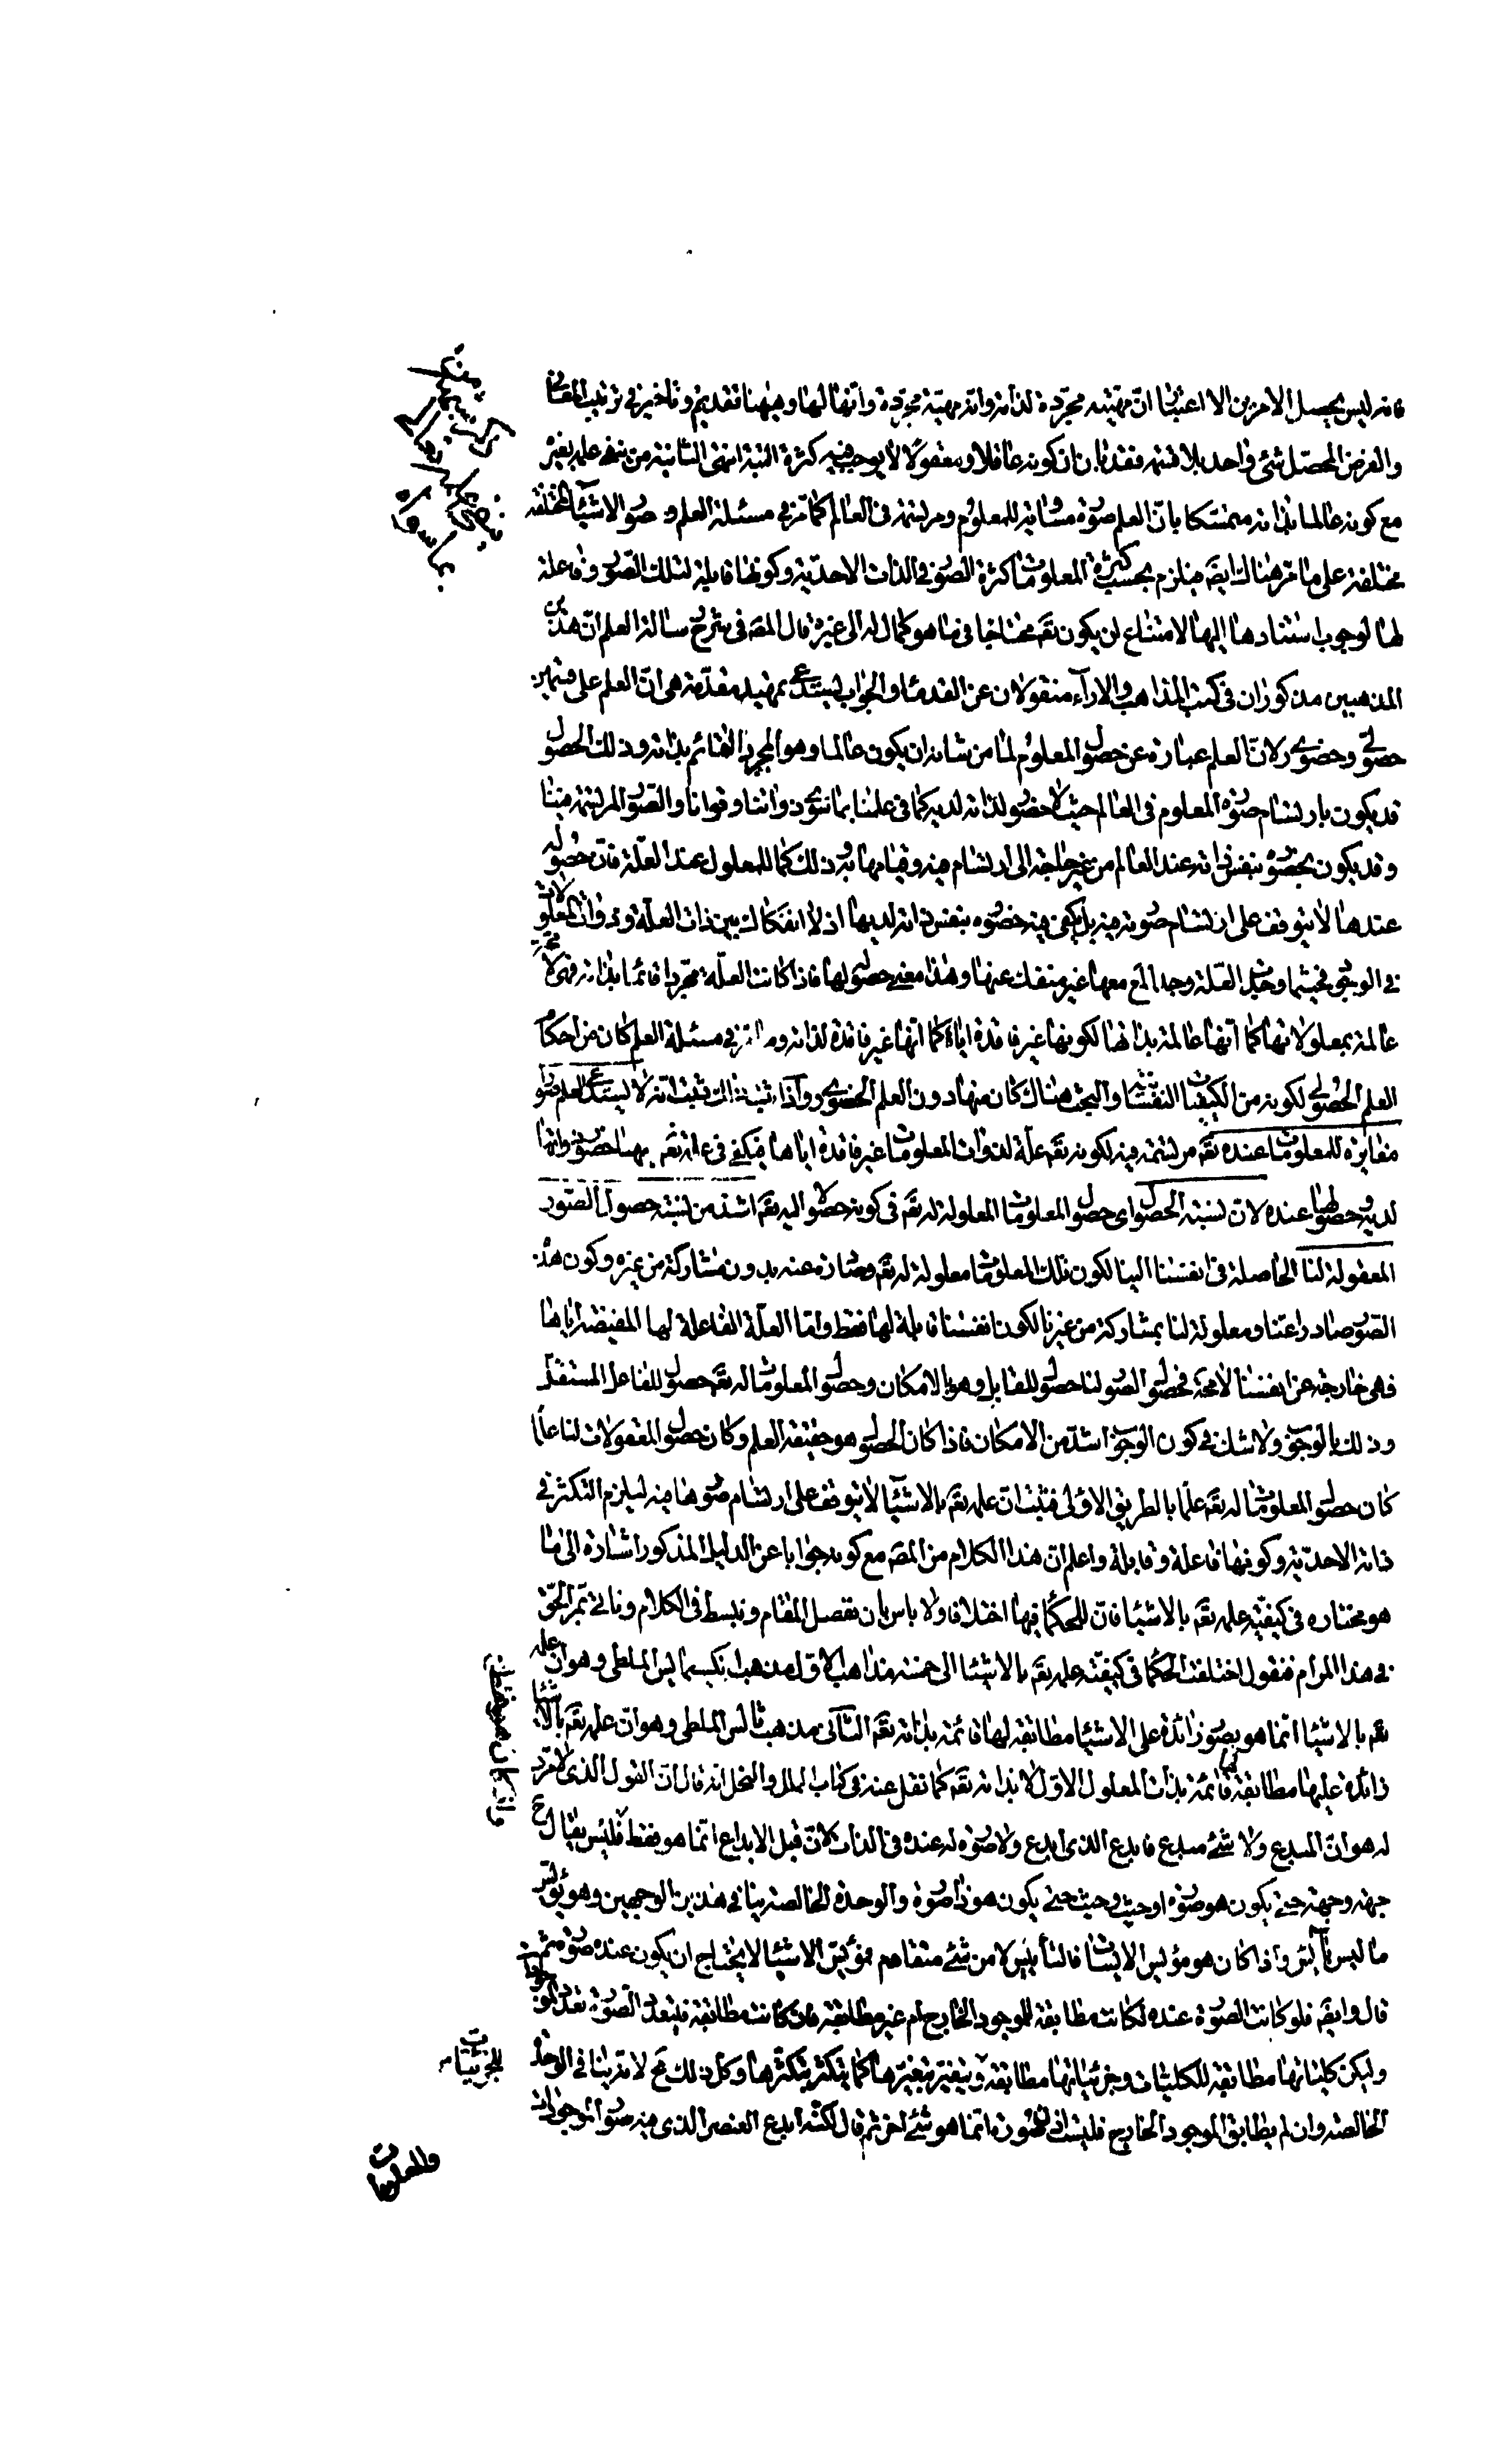 فانه ليس يحصل الامرين الا اعتبار ان مهيته مجردة لذاته وانه مهية مجردة وانها لها وههنا تقديم وتاخير في ترتيب المعاني
والغرض المحصل شئ واحد بلا قسمة فقد بان ان كونه عاقلا ومعقولا لا يوجب فيه كثرة البتة انتهى الثانية من نفى علمه بغيره
مع كونه عالما بذاته متمسكا بان العلم صورة مساوية للمعلوم ومرتسمة في العالم كما مر في مسئلة العلم و صور الاشياء المختلفة
مختلفة على ما مر هناك ايضا فيلزم بحسب كثرة المعلومات كثرة الصور في الذات الاحدية وكونها قابلة لتلك الصور وفاعلة
لها لوجوب استنادها اليها لامتناع ان يكون تعم محتاجا في ما هو كمال له الى غيره قال المصه في شرح رسالة العلم ان هذين
المذهبين مذكوران في كتب المذاهب والاراء منقولان عن القدماء والجواب يستدعى تمهيد مقدمة هى ان العلم على قسمين
حصولى وحضورى لان العلم عبارة عن حصول المعلوم لما من شانه ان يكون عالما وهو المجرد القائم بذاته وذلك الحصول
قد يكون بارتسام صورة المعلوم في العالم حيث لا حضور لذاته لديه كما في علمنا بما سوى ذواتنا وقوانا والصور المرتسمة فينا
وقد يكون بحضوره بنفس ذاته عند العالم من غير حاجة الى ارتسام فيه وقيامها به وذلك كما للمعلول عند العلة فان حصوله
عندها لا يتوقف على ارتسام صورته فيه بل يكفى فيه حضوره بنفس ذاته لديها اذ لا انفكاك بين ذات العلة وذوات المعلولات
في الوجود فحيثما وجد العلة وجد المع معها غير منفك عنها وهذا معنى حصوله لها فاذا كانت العلة مجردا قائما بذاته فهى لا محة
عالمة بمعلولاتها كما انها عالمة بذاتها لكونها غير فاقدة اياه كما انها غير فاقدة لذاته وما مر في مسئلة العلم كان من احكام
العلم الحصولى لكونه من الكيفيات النفسانية والبحث هناك كان منها دون العلم الحضورى واذا ثبت ذلك ثبت انه لا يستدعى العلم صورا
مغايرة للمعلومات عنده تعم مرتسمة فيه لكونه تعم علة لذوات المعلومات غير فاقدة اياها فيكفى في علمه تعم بها حضور ذواتها
لديه وحصولها عنده لان نسبة الحصول اى حصول المعلومات المعلولة له تعم في كونه حصولا اليه تعم اشد من نسبة حصول الصور
المعقولة لنا الحاصلة في انفسنا الينا لكون تلك المعلومات معلولة له تعم وصادرة عنه بدون مشاركة من غيره وكون هذه
الصور صادرة عنا ومعلولة لنا بمشاركة من غيرنا لكون انفسنا قابلة لها فقط واما العلة الفاعلة لها المفيضة اياها
فهى خارجة عن انفسنا لا محة فحصول الصور لنا حصول للقابل وهو بالامكان وحصول المعلومات له تعم حصول للفاعل المستقل
وذلك بالوجوب ولا شك في كون الوجوب اشد من الامكان فاذا كان الحصول هو حقيقة العلم وكان حصول المعقولات لنا علما
كان حصول المعلومات له تعم علما بالطريق الاولى فثبت ان علمه تعم بالاشياء لا يتوقف على ارتسام صورها فيه ليلزم التكثر في
ذاته الاحدية وكونها فاعلة وقابلة واعلم ان هذا الكلام من المصه مع كونه جوابا عن الدليل المذكور اشارة الى ما
هو مختاره في كيفية علمه تعم بالاشياء فان للحكماء فيها اختلافا ولا باس بان نفصل المقام ونبسط في الكلام وناتى بمر الحق
في هذا المرام فنقول اختلفت الحكماء في كيفية علمه تعم بالاشياء الى خمسة مذاهب الاول مذهب انكسيمايس الملطى وهو ان علمه
تعم بالاشياء انما هو بصور زائدة على الاشياء مطابقة لها قائمة بذاته تعم الثانى مذهب ثالس الملطى وهو ان علمه تعم بالاشياء
زائدة عليها مطابقة لها قائمة بذات المعلول الاول لا بذاته تعم كما نقل عنه في كتاب الملل والنحل انه قال ان القول الذى لا مرد
له هو ان المبدع ولا شئ مبدع فابدع الذى ابدع ولا صورة له عنده في الذات لان قبل الابداع انما هو فقط فليس يقال ح
جهة وجهة حتى يكون هو صورة او حيث وحيث حتى يكون هو ذا صورة والوحدة الخالصة ينافى هذين الوجهين وهو يؤيس
ما ليس بايس واذا كان هو مؤيس الايسات فالتأييس لا من شئ متقادم فمؤيس الاشياء لا يحتاج ان يكون عنده صورة ثم
قال وايضم فلو كانت الصورة عنده لكانت مطابقة للموجود الخارج ام غير مطابقة فان كانت مطابقة فليتعدد الصورة بعدد الموجودات
وليكن كلياتها مطابقة للكليات وجزئياتها مطابقة ويتغير بتغيرها كما يتكثر بتكثرها وكل ذلك مح لانه ينافى الوحدة
الخالصة وان لم يطابق الموجود الخارج فليست اذن صورة وانما هو شئ اخر ثم قال لكنه ابدع العنصر الذى فيه صور الموجودات
للجزئيات
والمعلومات